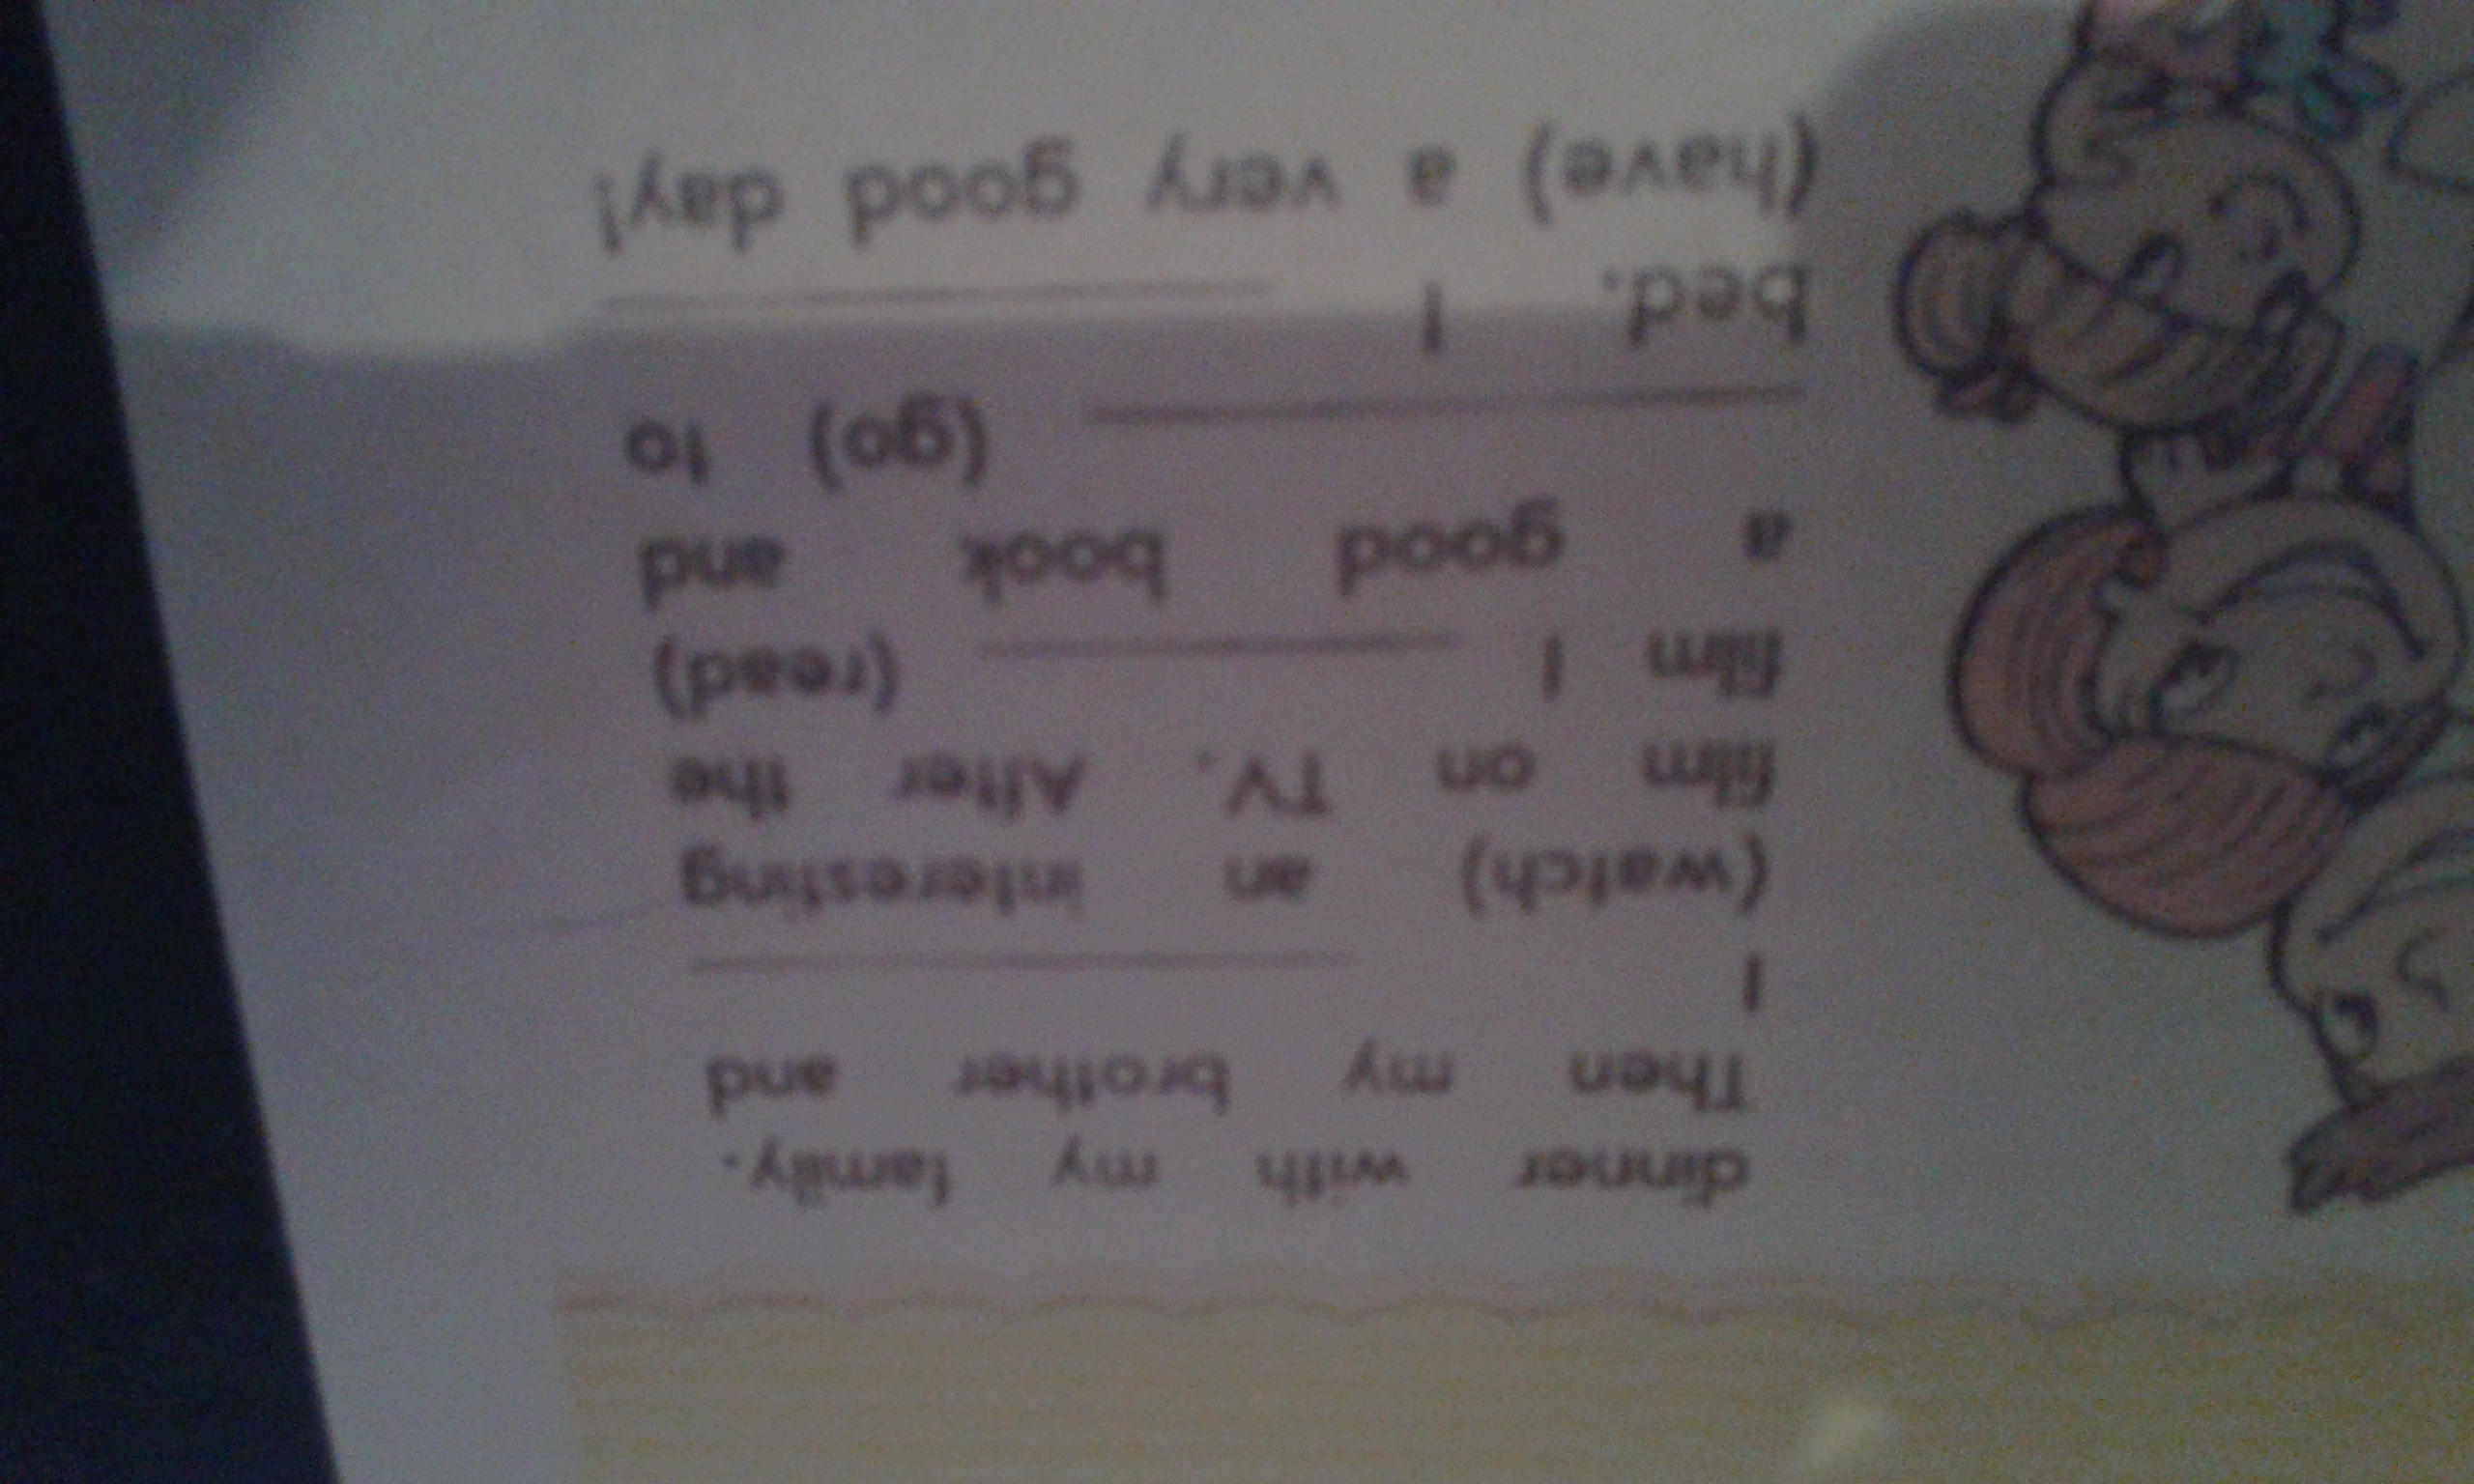 dinner with my family.
Then my brother and
I ____________
(watch) an interesting
film on TV. After the
film I ____________ (read)
a good book and
____________ (go) to
bed. I ____________
(have) a very good day!